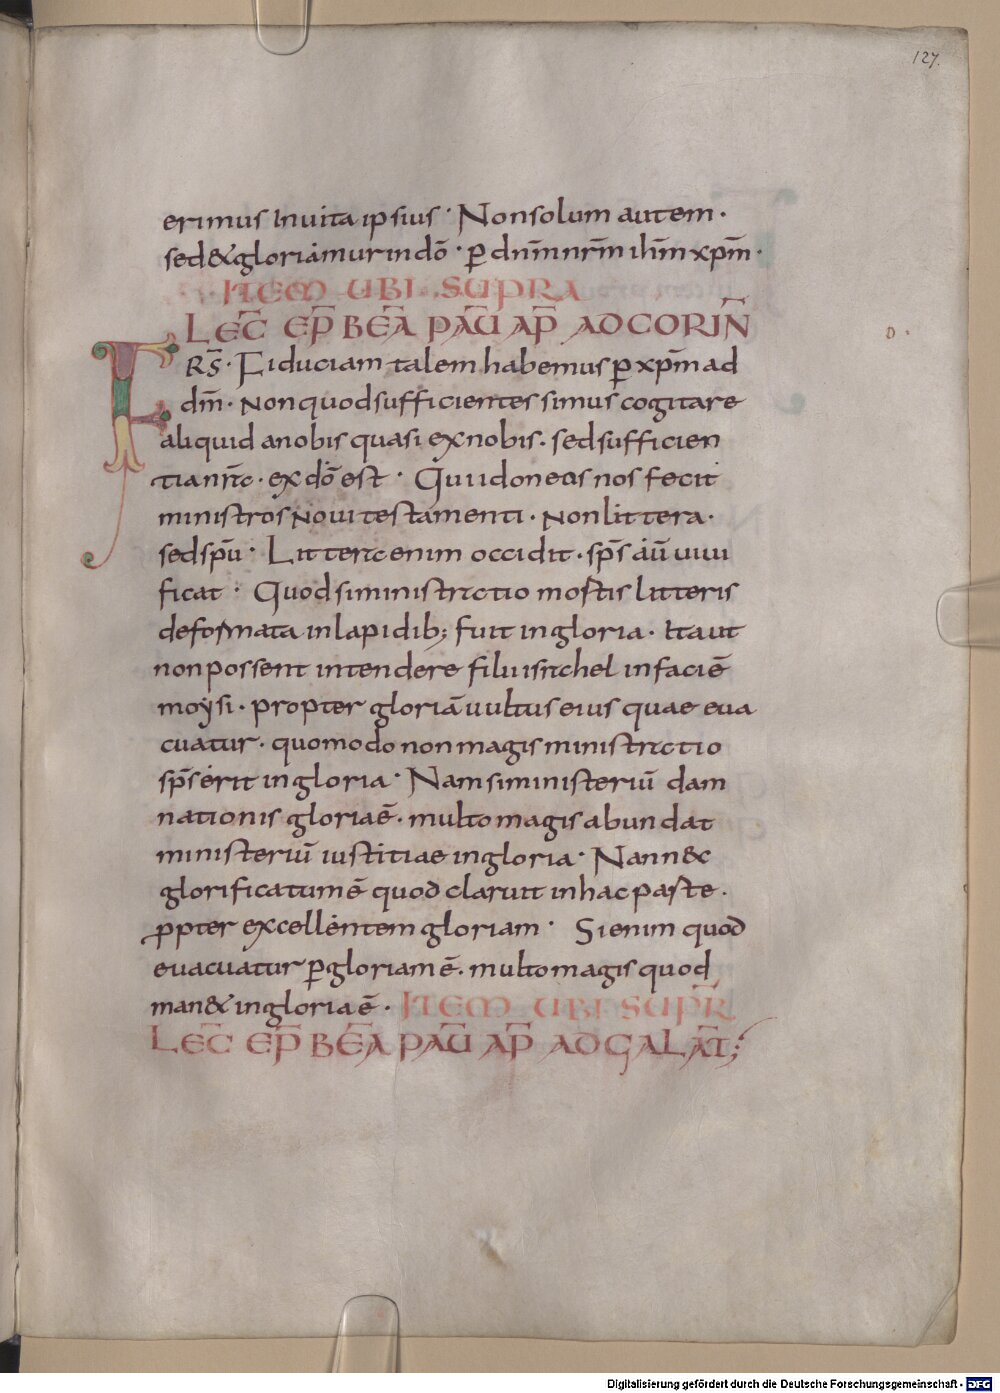 127.
erimus in vita ipsius · Non solum autem ·
sed & gloriamur in dō · ꝑ dn̄m nr̄m ih̄m xp̄m ·
ITEM UBI SUPRA
LEC̄ EP̄ BEĀ PAŪ AP̄ AD CORIN̄
FRS̄ · Fiduciam talem habemus ꝑ xp̄m ad
dm̄ · Non quod sufficientes simus cogitare
aliquid a nobis quasi ex nobis · sed sufficien
tia nr̄a · ex dō est · Qui idoneos nos fecit
ministros novi testamenti · non littera ·
sed spū · Littera enim occidit · sp̄s aū vivi
ficat · Quod si ministratio mortis litteris
deformata in lapidib; fuit in gloria · Ita ut
non possent intendere filii israhel in faciē
moysi · propter gloriā vultus eius quae eva
cuatur · quomodo non magis ministratio
sp̄s erit in gloria · Nam si ministeriū dam
nationis gloria ē · multo magis abundat
ministeriū iustitiae in gloria · Nam n&c
glorificatum ē quod claruit in hac parte ·
ꝓpter excellentem gloriam · Si enim quod
evacuatur ꝑ gloriam ē · multo magis quod
man& in gloria ē · ITEM UBI SUPR̄
LEC̄ EP̄ BEĀ PAŪ AP̄ AD GALAT̄;
Digitalisierung gefördert durch die Deutsche Forschungsgemeinschaft - DFG